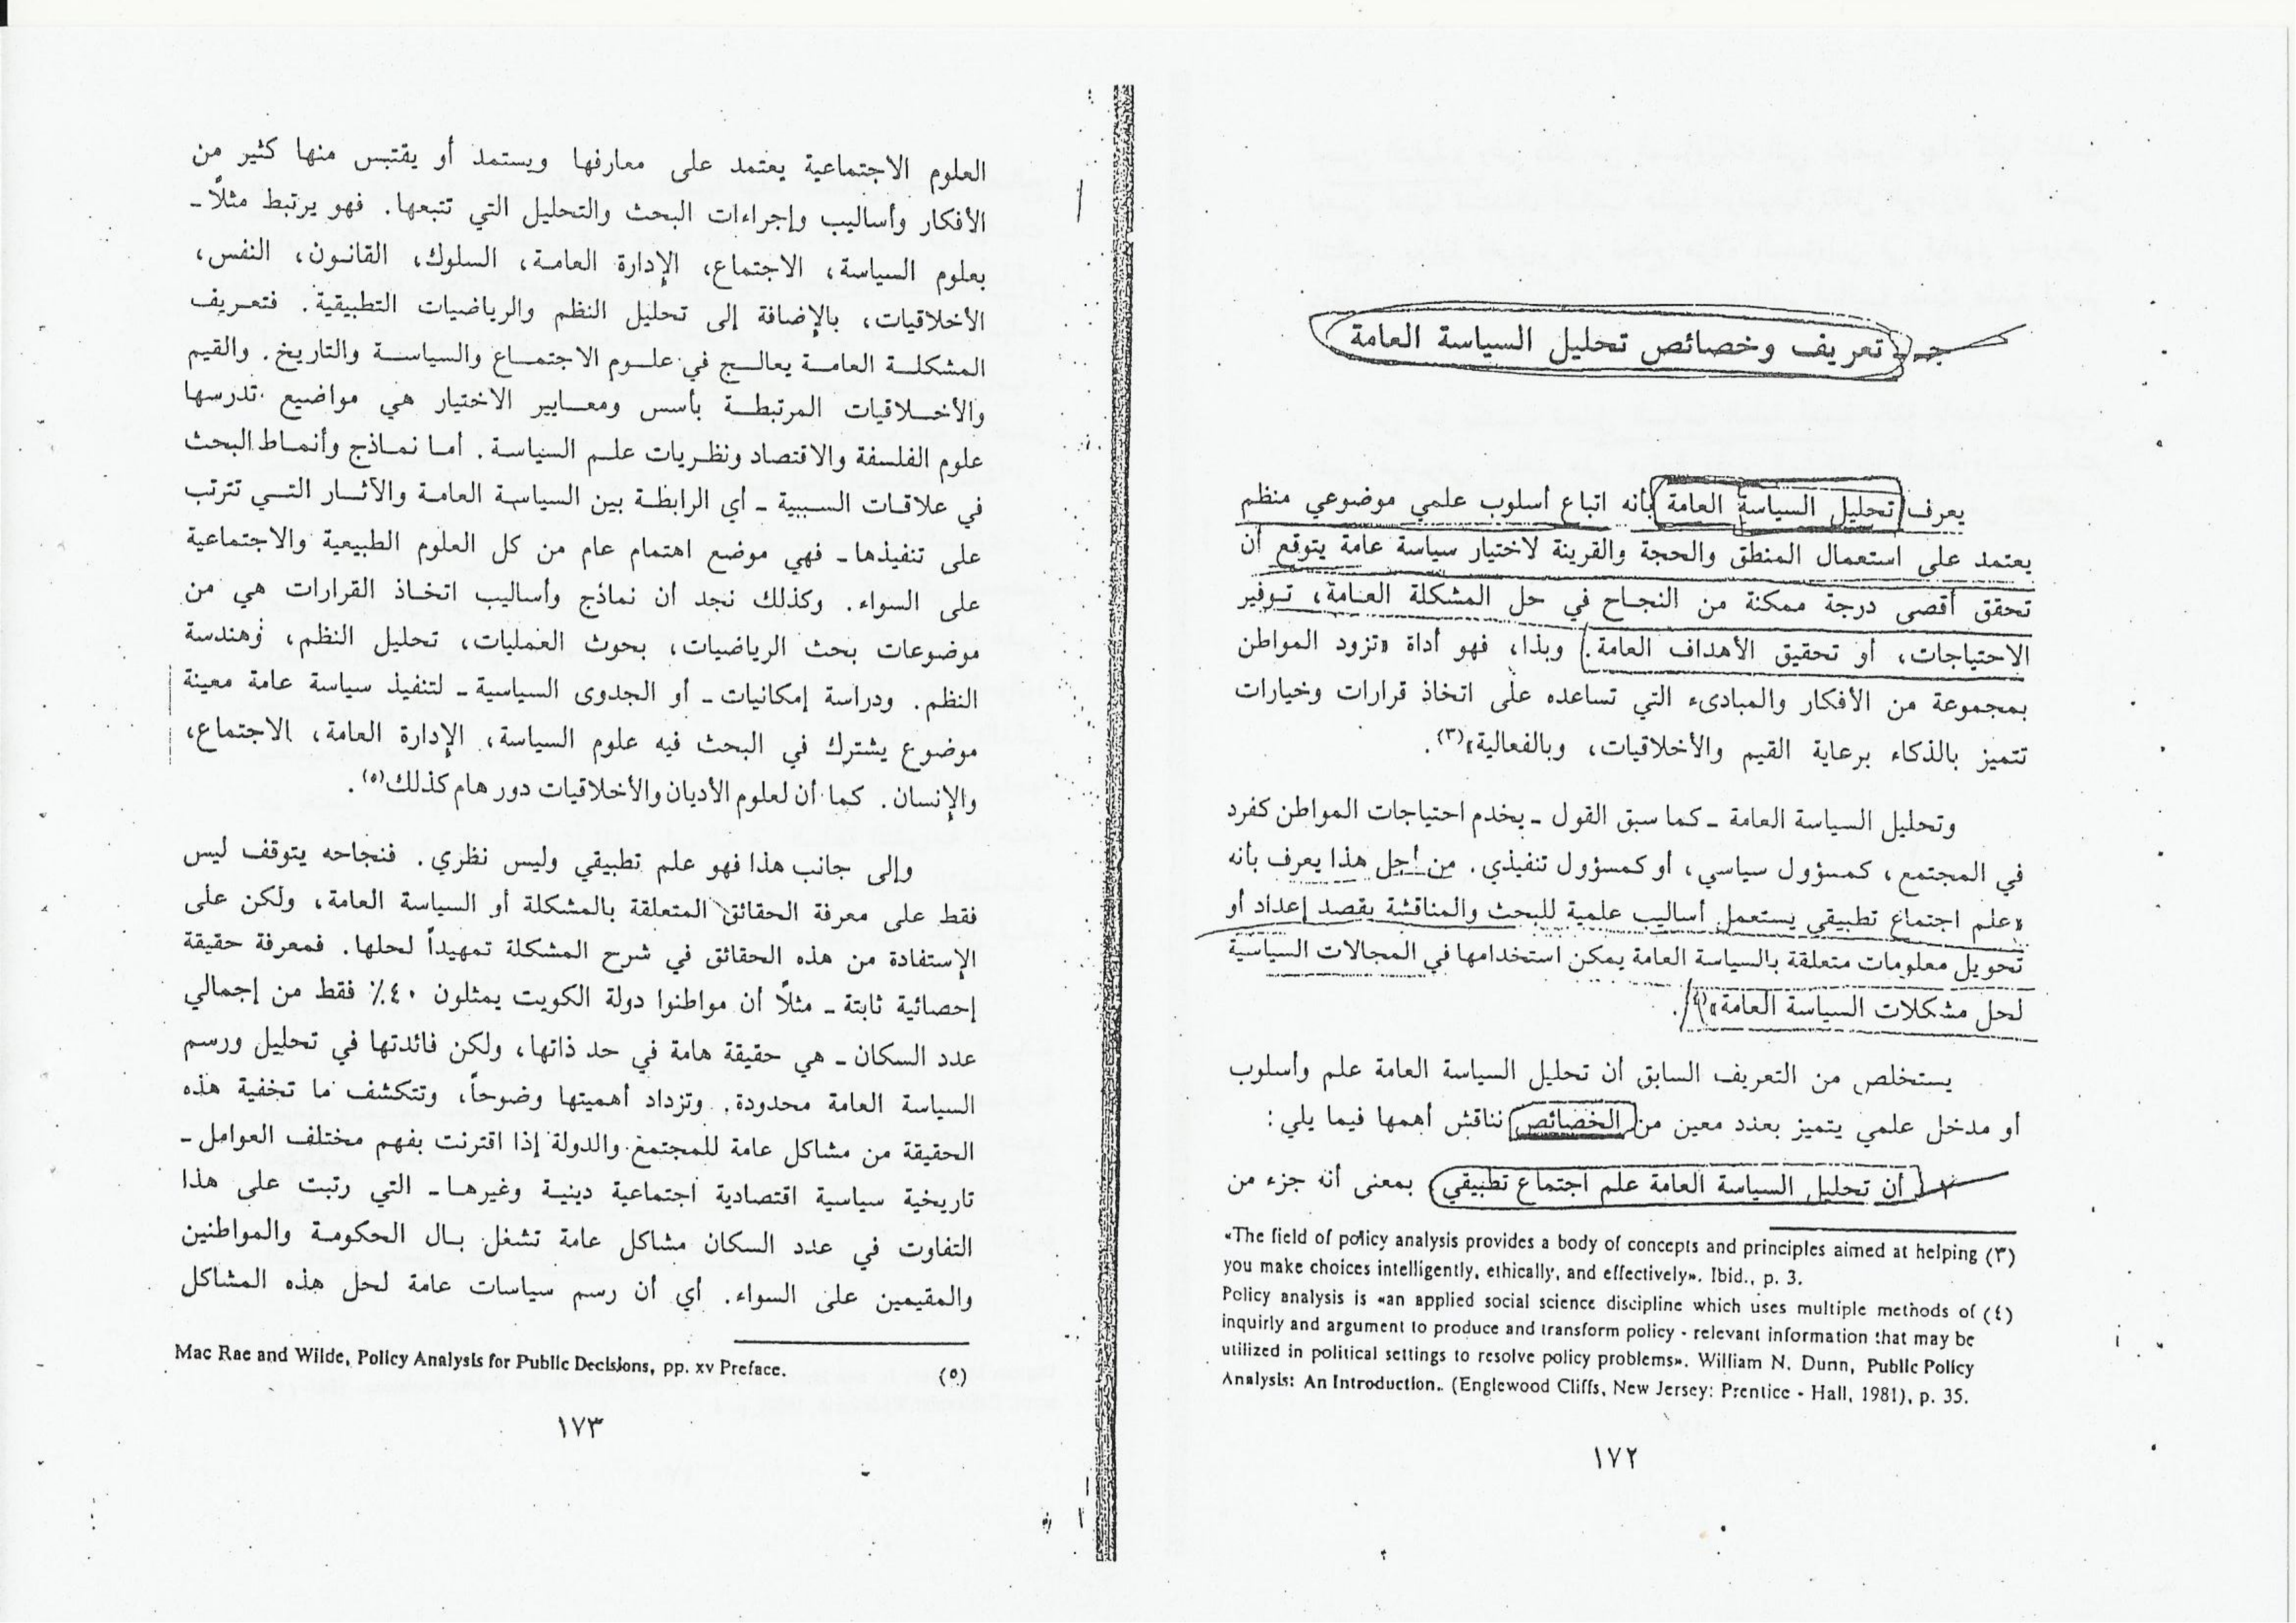 جـ - تعريف وخصائص تحليل السياسة العامة
يعرف تحليل السياسة العامة بأنه اتباع أسلوب علمي موضوعي منظم
يعتمد على استعمال المنطق والحجة والقرينة لاختيار سياسة عامة يتوقع أن
تحقق أقصى درجة ممكنة من النجاح في حل المشكلة العامة، توفير
الاحتياجات، أو تحقيق الأهداف العامة. وبذا، فهو أداة «تزود المواطن
بمجموعة من الأفكار والمبادىء التي تساعده على اتخاذ قرارات وخيارات
تتميز بالذكاء برعاية القيم والأخلاقيات، وبالفعالية»(٣).
وتحليل السياسة العامة - كما سبق القول - يخدم احتياجات المواطن كفرد
في المجتمع، كمسؤول سياسي، أو كمسؤول تنفيذي. من أجل هذا يعرف بأنه
«علم اجتماع تطبيقي يستعمل أساليب علمية للبحث والمناقشة بقصد إعداد أو
تحويل معلومات متعلقة بالسياسة العامة يمكن استخدامها في المجالات السياسية
لحل مشكلات السياسة العامة»(٤).
يستخلص من التعريف السابق أن تحليل السياسة العامة علم وأسلوب
أو مدخل علمي يتميز بعدد معين من الخصائص نناقش أهمها فيما يلي:
١ - أن تحليل السياسة العامة علم اجتماع تطبيقي، بمعنى أنه جزء من
(٣) «The field of policy analysis provides a body of concepts and principles aimed at helping
you make choices intelligently, ethically, and effectively». Ibid., p. 3.
(٤) Policy analysis is «an applied social science discipline which uses multiple methods of
inquirly and argument to produce and transform policy - relevant information that may be
utilized in political settings to resolve policy problems». William N. Dunn, Public Policy
Analysis: An Introduction.. (Englewood Cliffs, New Jersey: Prentice - Hall, 1981), p. 35.
١٧٢
العلوم الاجتماعية يعتمد على معارفها ويستمد أو يقتبس منها كثير من
الأفكار وأساليب وإجراءات البحث والتحليل التي تتبعها. فهو يرتبط مثلاً -
بعلوم السياسة، الاجتماع، الإدارة العامة، السلوك، القانون، النفس،
الأخلاقيات، بالإضافة إلى تحليل النظم والرياضيات التطبيقية. فتعريف
المشكلة العامة يعالج في علوم الاجتماع والسياسة والتاريخ. والقيم
والأخلاقيات المرتبطة بأسس ومعايير الاختيار هي مواضيع تدرسها
علوم الفلسفة والاقتصاد ونظريات علم السياسة. أما نماذج وأنماط البحث
في علاقات السببية - أي الرابطة بين السياسة العامة والآثار التي تترتب
على تنفيذها - فهي موضع اهتمام عام من كل العلوم الطبيعية والاجتماعية
على السواء. وكذلك نجد أن نماذج وأساليب اتخاذ القرارات هي من
موضوعات بحث الرياضيات، بحوث العمليات، تحليل النظم، وهندسة
النظم. ودراسة إمكانيات - أو الجدوى السياسية - لتنفيذ سياسة عامة معينة
موضوع يشترك في البحث فيه علوم السياسة، الإدارة العامة، الاجتماع،
والإنسان. كما أن لعلوم الأديان والأخلاقيات دور هام كذلك(٥).
وإلى جانب هذا فهو علم تطبيقي وليس نظري. فنجاحه يتوقف ليس
فقط على معرفة الحقائق المتعلقة بالمشكلة أو السياسة العامة، ولكن على
الإستفادة من هذه الحقائق في شرح المشكلة تمهيداً لحلها. فمعرفة حقيقة
إحصائية ثابتة - مثلاً أن مواطنوا دولة الكويت يمثلون ٤٠٪ فقط من إجمالي
عدد السكان - هي حقيقة هامة في حد ذاتها، ولكن فائدتها في تحليل ورسم
السياسة العامة محدودة. وتزداد أهميتها وضوحاً، وتتكشف ما تخفية هذه
الحقيقة من مشاكل عامة للمجتمع والدولة إذا اقترنت بفهم مختلف العوامل -
تاريخية سياسية اقتصادية اجتماعية دينية وغيرها - التي رتبت على هذا
التفاوت في عدد السكان مشاكل عامة تشغل بال الحكومة والمواطنين
والمقيمين على السواء. أي أن رسم سياسات عامة لحل هذه المشاكل
(٥) Mac Rae and Wilde, Policy Analysis for Public Decisions, pp. xv Preface.
١٧٣